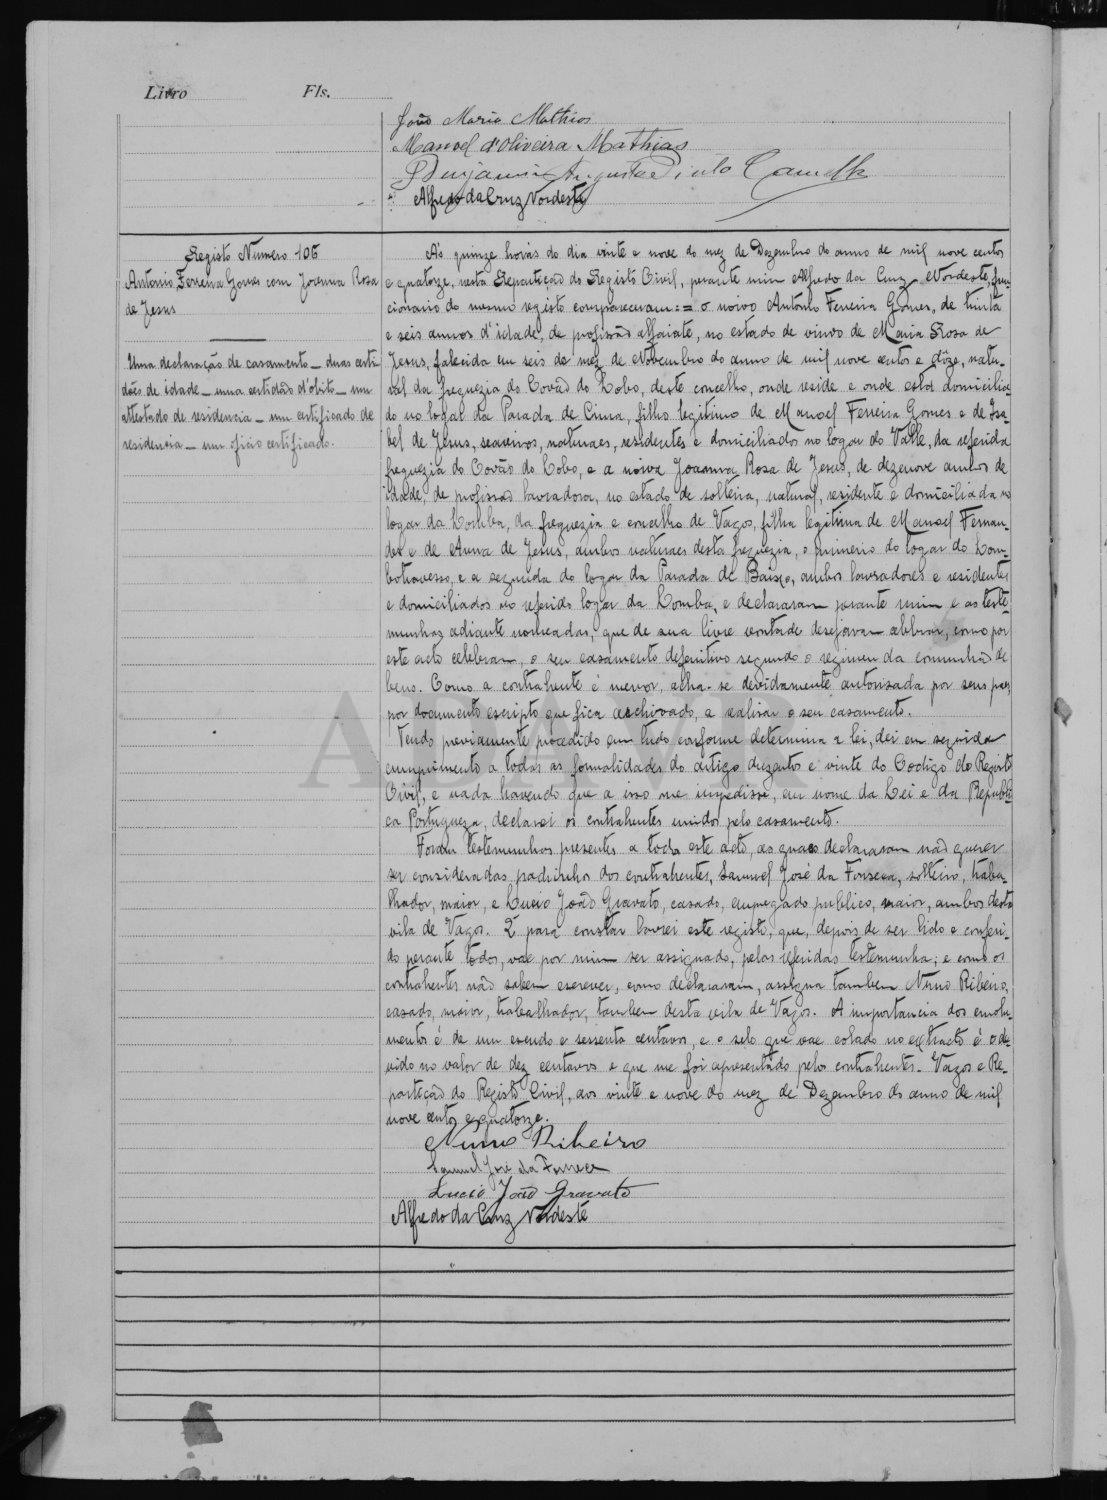 Livro Fls.
João Maria Mathias
Manoel d'Oliveira Mathias
Benjamim Augusto Pinto Camello
Alfredo da Cruz Nordeste
Registo Numero 106
Antonio Ferreira Gomes com Joanna Rosa
de Jesus
Uma declaração de casamento _ duas certi-
dões de idade _ uma certidão d'obito _ um
attestado de residencia _ um certificado de
residencia _ um oficio certificado.
A's quinze horas do dia vinte e nove do mez de Dezembro do anno de mil nove centos
e quatorze, nesta Repartição do Registo Civil, perante mim Alfredo da Cruz Nordeste, fun-
cionario do mesmo registo compareceram: = o noivo Antonio Ferreira Gomes, de trinta
e seis annos d'idade, de profissão alfaiate, no estado de viuvo de Maria Rosa de
Jesus, falecida em seis do mez de Novembro do anno de mil nove centos e dôze, natu-
ral da freguezia do Covão do Lobo, deste concelho, onde reside e onde está domicilia-
do no logar da Parada de Cima, filho legitimo de Manoel Ferreira Gomes e de Isa-
bel de Jesus, seareiros, naturaes, residentes e domiciliados no logar do Valle, da referida
freguezia do Covão do Lobo, e a noiva Joanna Rosa de Jesus, de dezenove annos de
idade, de profissão lavradora, no estado de solteira, natural, residente e domiciliada no
logar da Lomba, da freguezia e concelho de Vagos, filha legitima de Manoel Fernan-
des e de Anna de Jesus, ambos naturaes desta freguezia, o primeiro do logar do Lom-
botravesso, e a segunda do logar da Parada de Baixo, ambos lavradores e residentes
e domiciliados no referido logar da Lomba, e declararam perante mim e as teste-
munhas adiante nomeadas, que de sua livre vontade desejavam celebrar, como por
este acto celebram, o seu casamento definitivo segundo o regimen da comunhão de
bens. Como a contrahente é menor, acha-se devidamente autorisada por seus paes,
por documento escripto que fica archivado, a realisar o seu casamento.
Tendo previamente procedido em tudo conforme determina a lei, dei em seguida
cumprimento a todas as formalidades do artigo duzentos e vinte do Codigo do Registo
Civil, e nada havendo que a isso me impedisse, em nome da Lei e da Republi-
ca Portugueza, declarei os contrahentes unidos pelo casamento.
Foram testemunhas presentes a todo este acto, as quaes declararam não querer
ser consideradas padrinhos dos contrahentes, Samuel José da Fonseca, solteiro, traba-
lhador, maior, e Lucio João Gravato, casado, empregado publico, maior, ambos desta
vila de Vagos. E para constar lavrei este registo, que, depois de ser lido e conferi-
do perante todos, vae por mim ser assignado, pelas referidas testemunha; e como os
contrahentes não sabem escrever, como declararam, assigna tambem Nuno Ribeiro,
casado, maior, trabalhador, tambem desta vila de Vagos. A importancia dos emolu-
mentos é de um escudo e sessenta centavos, e o selo que vae colado no extracto é o de-
vido no valor de dez centavos e que me foi apresentado pelos contrahentes. Vagos e Re-
partição do Registo Civil, aos vinte e nove do mez de Dezembro do anno de mil
nove centos e quatorze.
Nuno Ribeiro
Samuel José da Fonseca
Lucio João Gravato
Alfredo da Cruz Nordeste